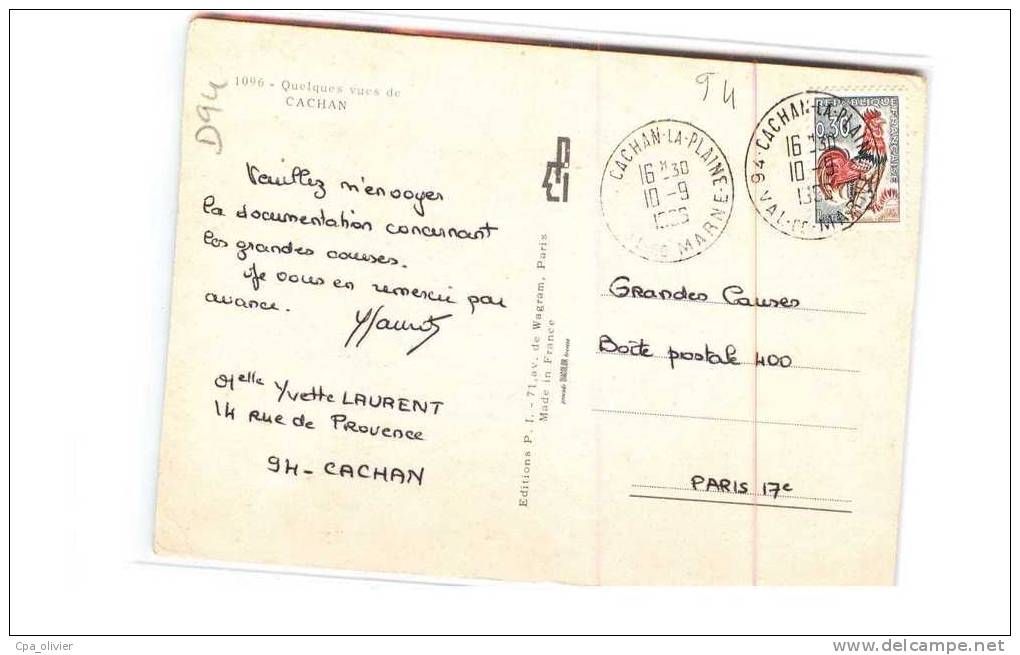 1096 - Quelques vues de
CACHAN
D94
94
Veuillez m'envoyer
la documentation concernant
les grandes causes.
Je vous en remercie par
avance.
Melle Yvette LAURENT
14 Rue de Provence
94 - CACHAN
Editions P. I. - 71, av. de Wagram, Paris
Made in France
CACHAN-LA-PLAINE
16 H 30
10-9
MARNE
94 - CACHAN-LA-PLAINE
16 H 30
10-9
VAL-DE-MARNE
REPUBLIQUE FRANÇAISE
0,30
Grandes Causes
Boîte postale 400
PARIS 17e
Cpa_olivier
delcampe.net